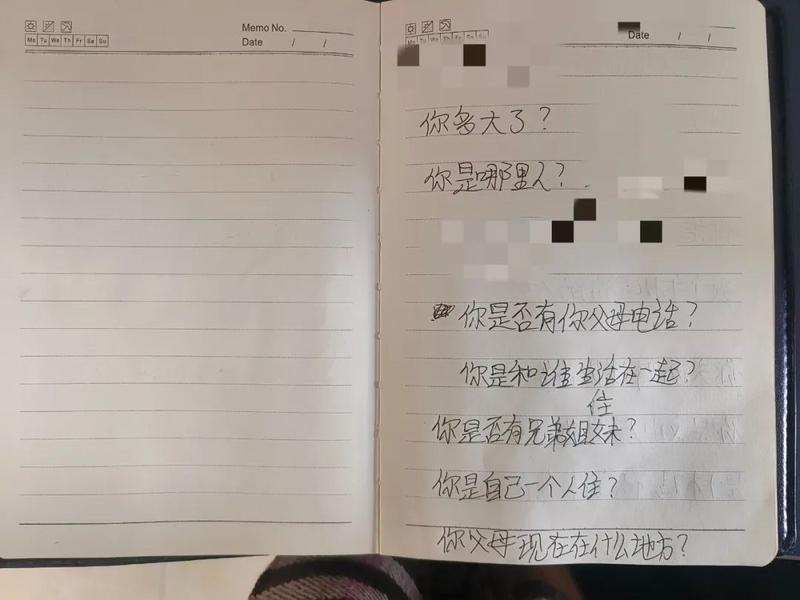 Memo No.
Mo Tu We Th Fr Sa Su
Date / /
Mo Tu We Th Fr Sa Su
Date / /
你多大了?
你是哪里人?
你是否有你父母电话?
你是和谁生活在一起?
住
你是否有兄弟姐妹?
你是自己一个人住?
你父母现在在什么地方?